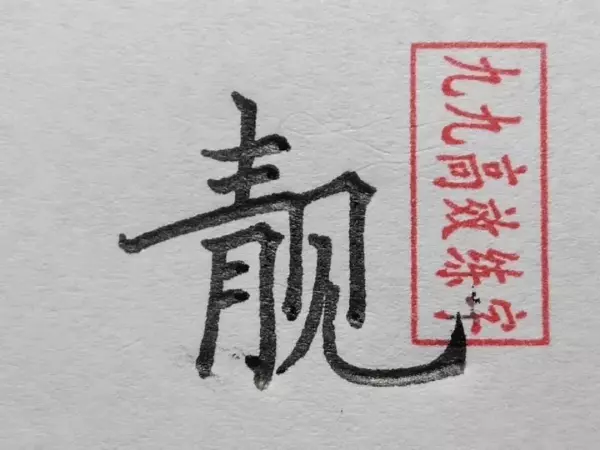 靓
九九高效练字